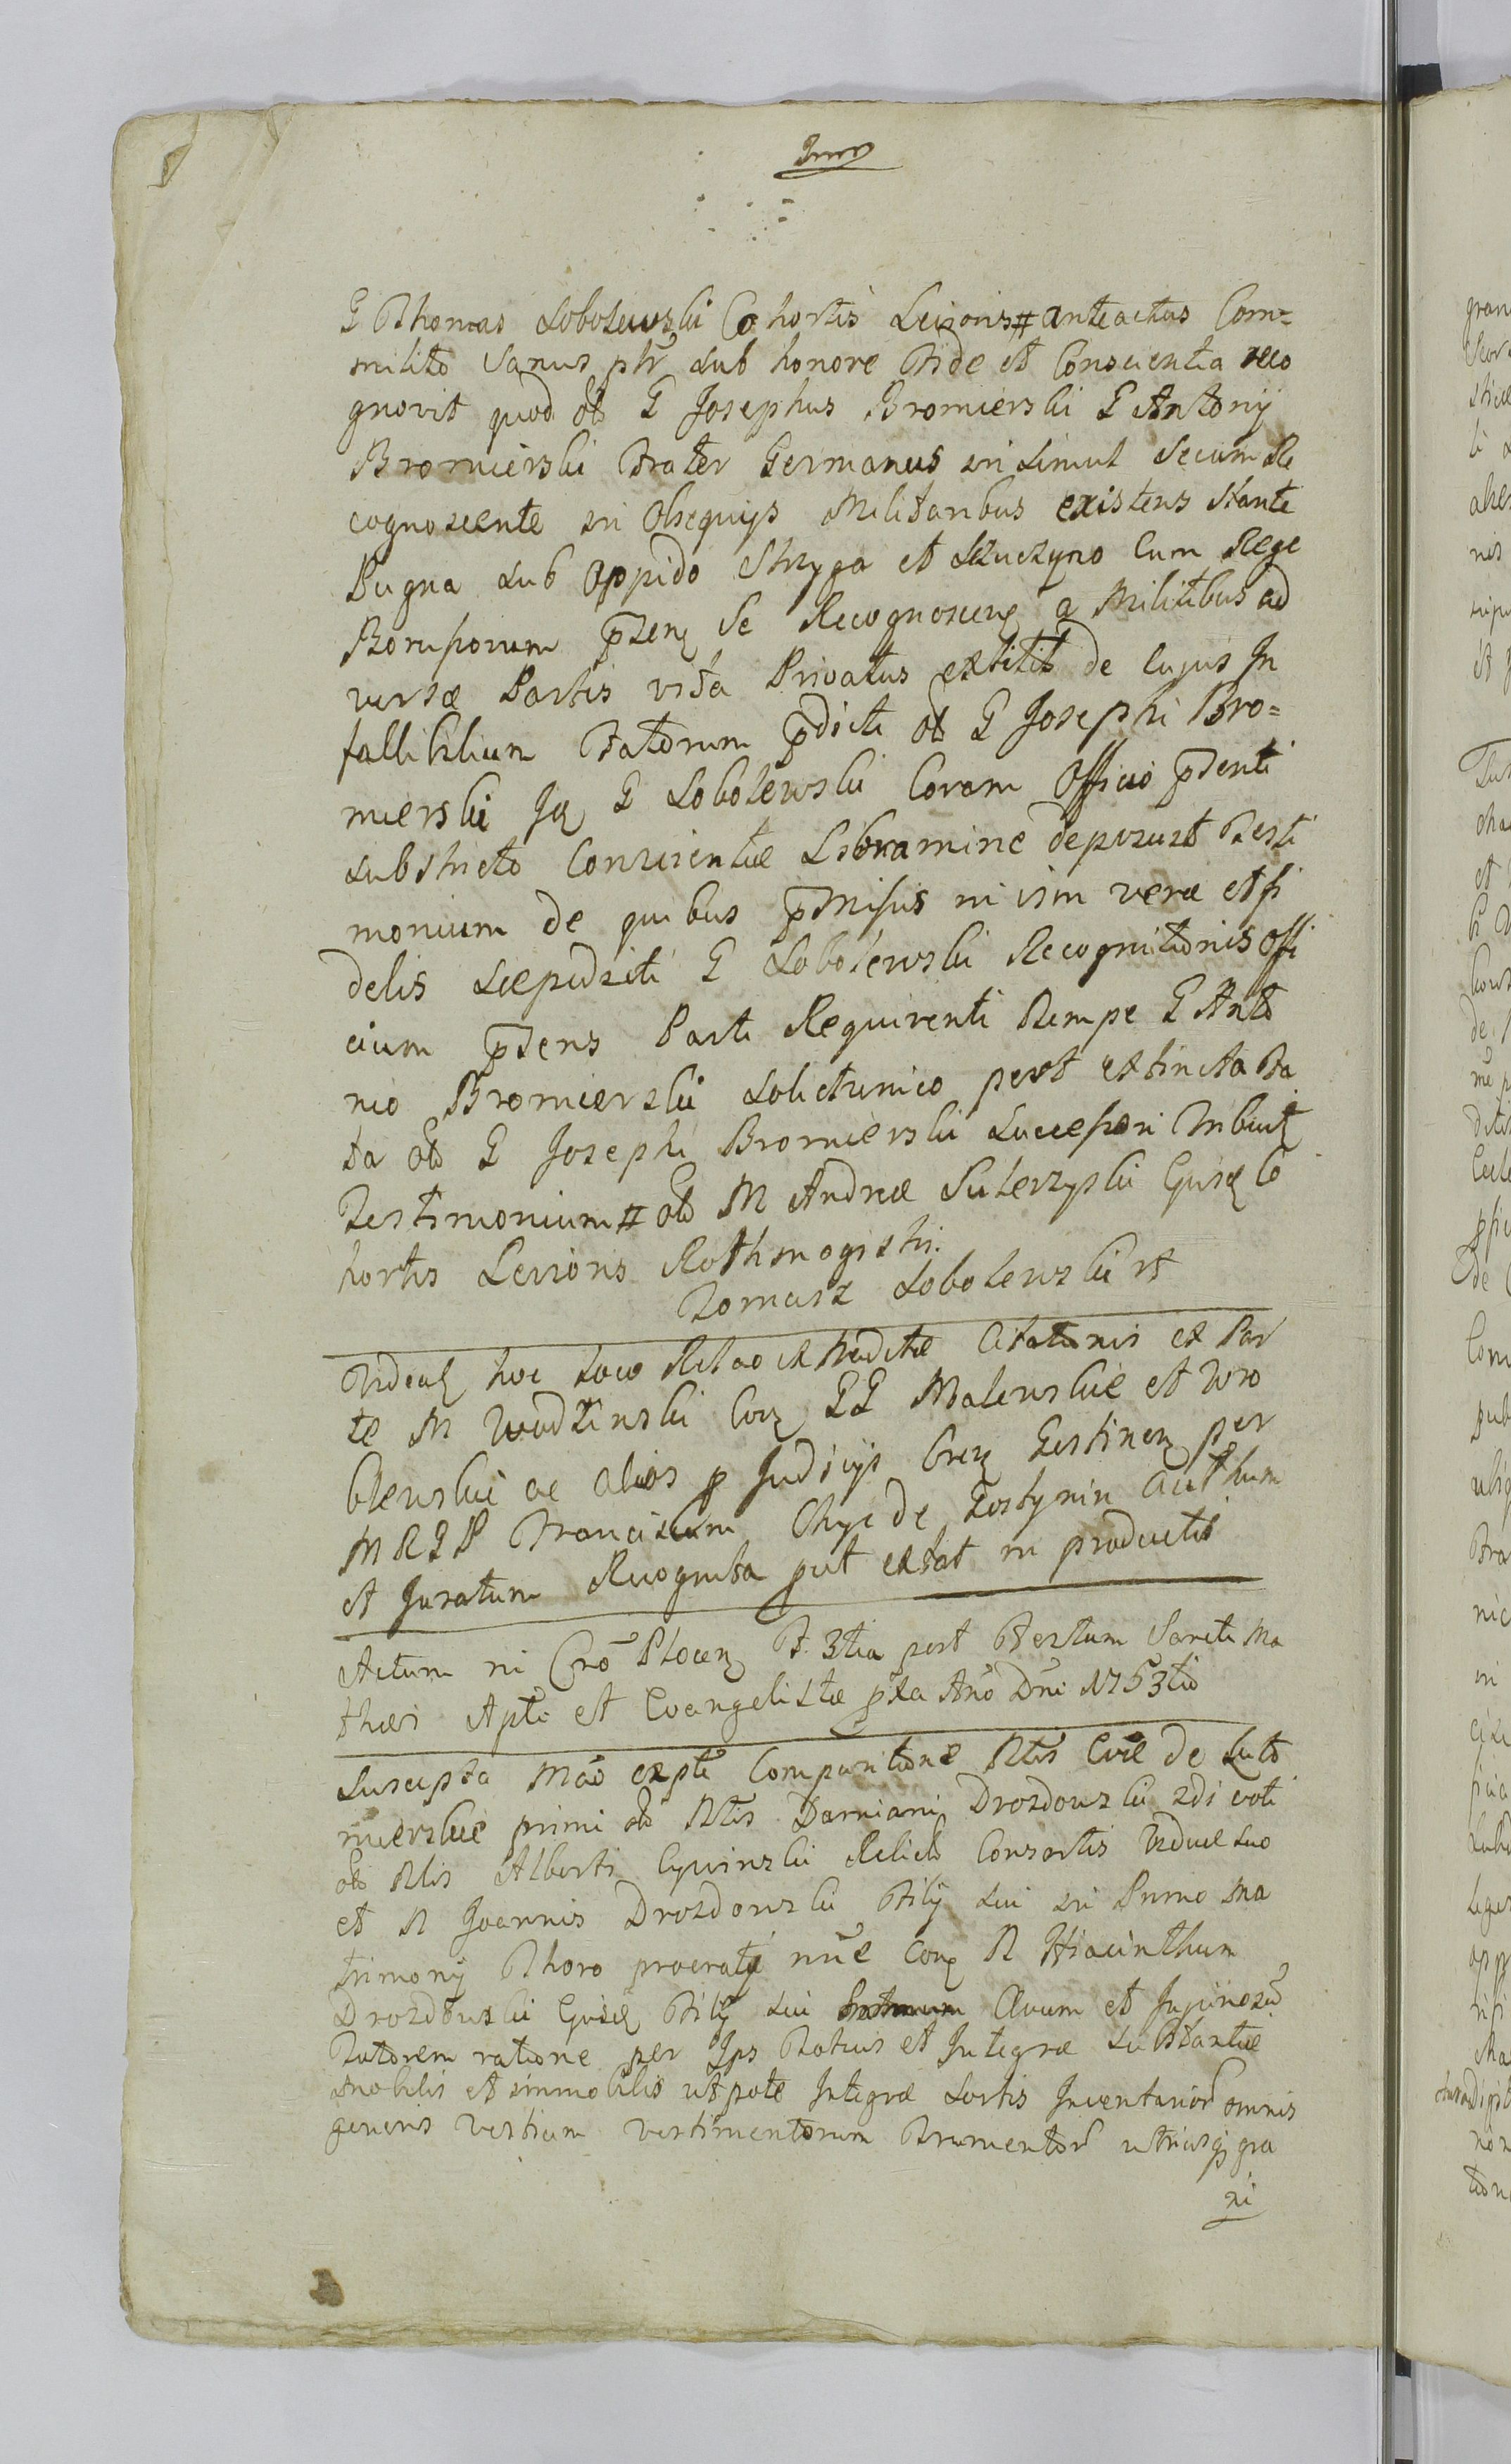 G Thomas Sobolewski Cohortis Levioris # anteactus Com=
milito Sanus ptr Sub honore Fide et Conscientia reco
gnovit quod ol͞ G Josephus Bromierski G Antonij
Bromierski Frater Germanus in Simul Secum Re
cognoscente in Obsequijs Militaribus existens Stante
Pugna Sub Oppido Stryga et Szuczyno Cum Rege
Borussorum p͞dens Se Recognoscen a Militibus ad
versæ Partis vita Privatus extitit de Cujus In
fallibilium Fatorum p͞dicti ol͞ G Josephi Bro=
mierski G Sobolewski Coram Officio p͞denti
Substricto Conscientiæ Libramine deposuit Testi
monium de quibus p͞missis in vim veræ et fi
delis G Sobolewski Recognitionis Offi
cium p͞dens Parti Requirenti Nempe G Anto
nio Bromierski post extincta Fa
ta ol͞ G Josephi Bromierski Successori
Testimonium # ol͞ M Andreæ Co
hortis Levioris Rothmagistri.
Tomasz Sobolewski
hoc loco Relao extraditæ Citationis ex Par
te M Wodzinski G G Malewskie et Wro
blewskie ac alios p Judicijs Gostinen per
M R G P Franciszkum Chyc de Gostynin authum
et Juratum Recognita put extat in productis
Actum in Cro Plocen F. 3tia post Festum Sancti Ma
thæi Apti et Evangelistæ pxa Ano Dni 1753tio
Suscepta Mao Comparitione Nlis de Luto
mierskie primi ol͞ Nlis Damiani Drozdowski 2di voti
ol͞ Nlis Alberti Cywinski Relicta Consortis Viduæ suo
et N Joannis Drozdowski Filij sui in Primo Ma
trimonij Thoro procrati nne N Hiacinthum
Drozdowski Filij sui Avum et
Tutorem ratione per Ips Totius et Integræ Substantiæ
mobilis et immobilis utpote Integræ Sortis Inventarior omnis
generis vestium vestimentorum Frumentor utriusq gra
ni